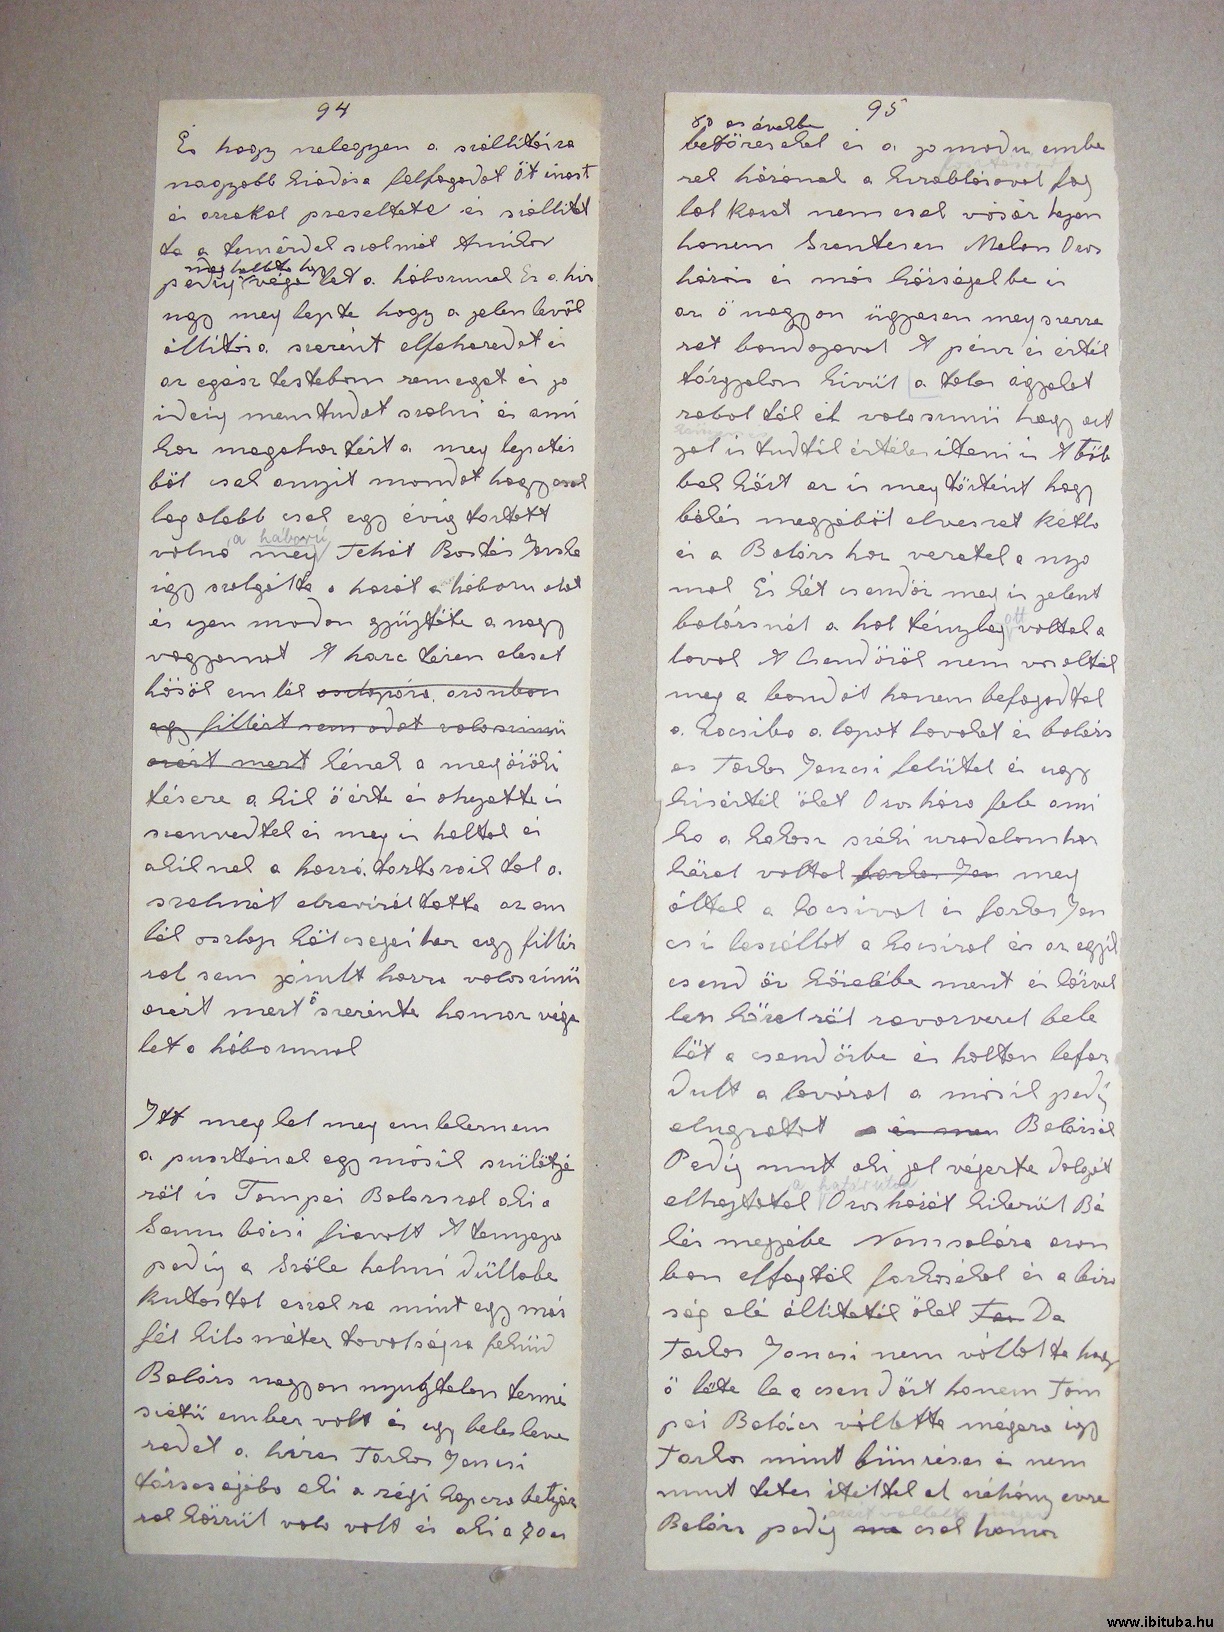 94
És hogy nelegyen a szállitásra
nagyobb kiadása felfogadot öt inast
és azzokal preseltete és szállitot
ta a temérdek szalmát Amikor
meg hallotta hogy
pedig vége let a háborunak Ez a hir
ugy meg lepte hogy a jelen levök
állitása szerént elfeheredet és
az egész testeben remeget és jo
ideig nemtudot szolni és ami
kor magához tért a meg lepetés
böl csak anyit mondot hogy csak
leg alább csak egy évig tartott
a háború
volna még Tehát Bostás Jooska
igy szolgálta a hazát a háboru alat
és ijen modon gyüjtöte a nagy
vagyonot A harc téren eleset
hösök emlék oszlopára azonban
egy fillért sem adot valoszinü
azért mert kének a megörökí
tésere a kik ö érte és ohejette is
szenvedtek és meg is haltak és
akik nek a horrá tartozoik tol a
szalmát elrevirál tatta az em
lék oszlop költségeihez egy fillér
rel sem járult hozzá valoszinü
azért mert ö szerénte hamar vége
let a háborunak
Itt meg kel meg emlekeznem
a pusztának egy másik szülötjé
röl is Tompai Balázsrol aki a
Samu bácsi fia volt A tanyája
pedig a Szöle halmi düllöbe
Kutastol eszakra mint egy más
fél kilo méter tavolságra feküd
Balázs nagyon nyugtalan termé
szetü ember volt és ugy belekeve
redet a hires Farkas Jancsi
társaságába aki a régi kapca betyár
rok közzül valo volt és aki a 70 es
95
80 as évekbe
betöresekel és a jo modu embe
rek házának a kirablásaval fog
lal kozot nem csak vásár hejen
hanem Szentesen Makon Oros
házán és más községekbe is
az ö nagyon ügyesen meg szerve
zet bandajaval A pénz és érték
tárgyakon kivül a tolas ágyakat
rabol ták el valoszinü hogy azt
jol is tudták értékesiteni is A töb
bek közt az is meg történt hogy
békés megyéböl elveszet két lo
és a Balázs hoz vezetek a nyo
mok És két csendör meg is jelent
ott
balázsnál a hol tényleg voltak a
lovak A Csendörök nem vasolták
meg a bandát hanem befogadtak
a kocsiba a lopot lovakat és balázs
es Farkas Jancsi felültek és ugy
kisérték öket Orosháza fele ami
ko a kakasz széki uradalomhoz
közel voltak farkas Jan meg
áltak a kocsival és farkas Jan
csi leszállot a kocsirol és az egyik
csend ör közelébe ment és közvet
len közel röl revorverel bele
löt a csendörbe és holtan lefor
dult a lováról a másik pedig
elugratot a és men Balázsék
Pedig mint aki jol végezte dolgát
a határútan
elhajtotak Orosházát kikerül Bé
kés megyébe Nemsokára azon
ban elfogták farkasékat és a biro
ság elé állitoták öket Far De
Farkas Jancsi nem vállolta hogy
ö löte le a csendört hanem Tom
pai Balázs vállotta mágára igy
Farkas mint bünrészes és nem
mint tetes itéltek el néhány evre
Balázs pedig ma csak hamar
www.ibituba.hu